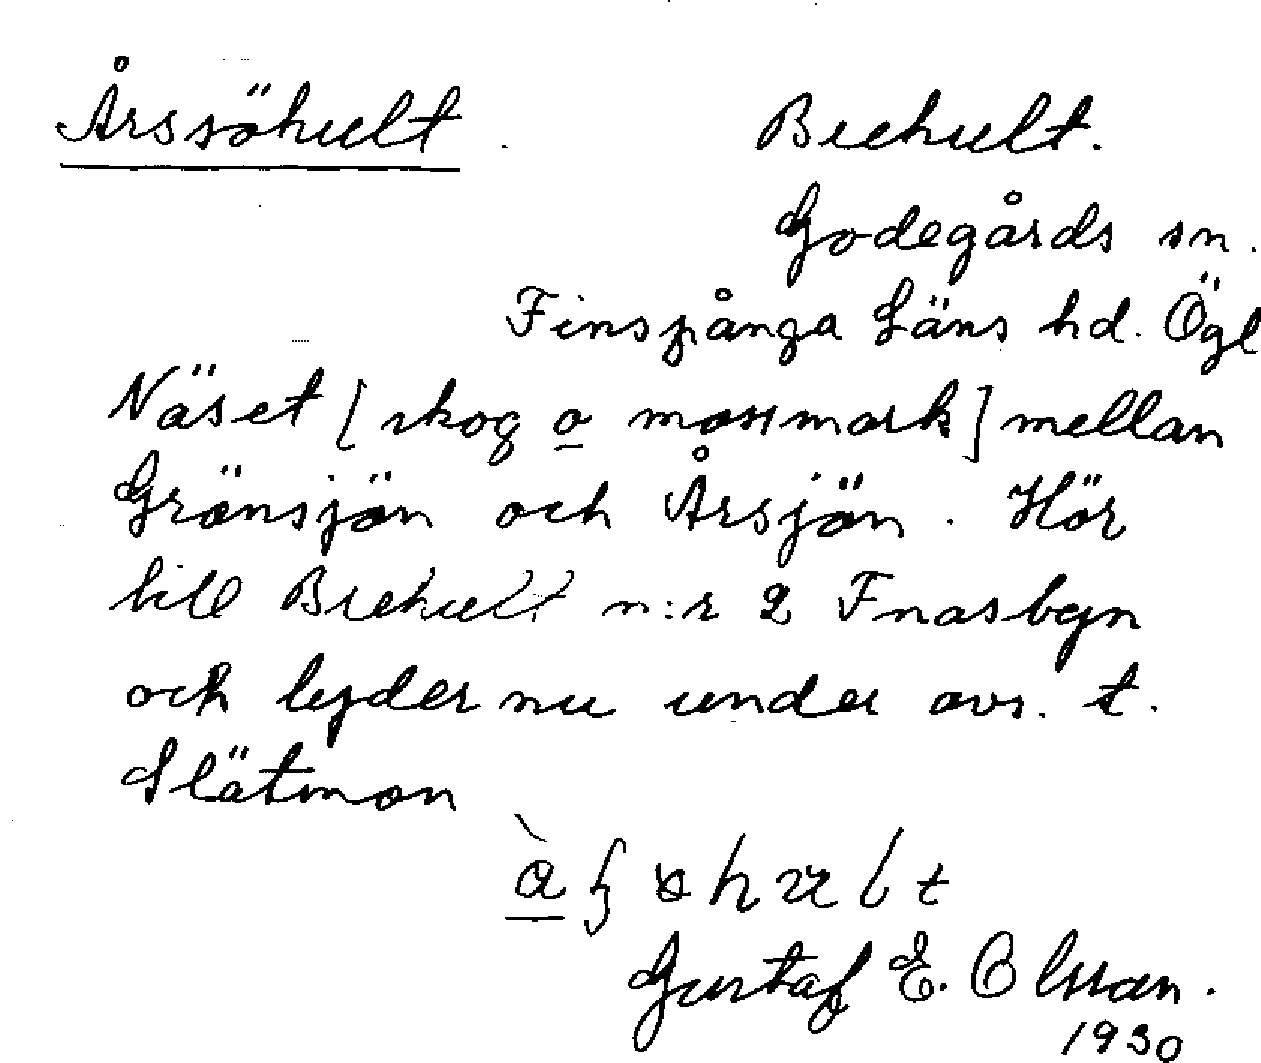 Årssöhult
Brehult.
Godegårds sn.
Finspånga Läns hd. Ögl
Näset [skog o mossmark] mellan
Gränsjön och Årsjön. Hör
till Brehult n:r 2 Fnasbyn
och lyder nu under avs. t.
Slätmon
Gustaf E. Olsson.
1930